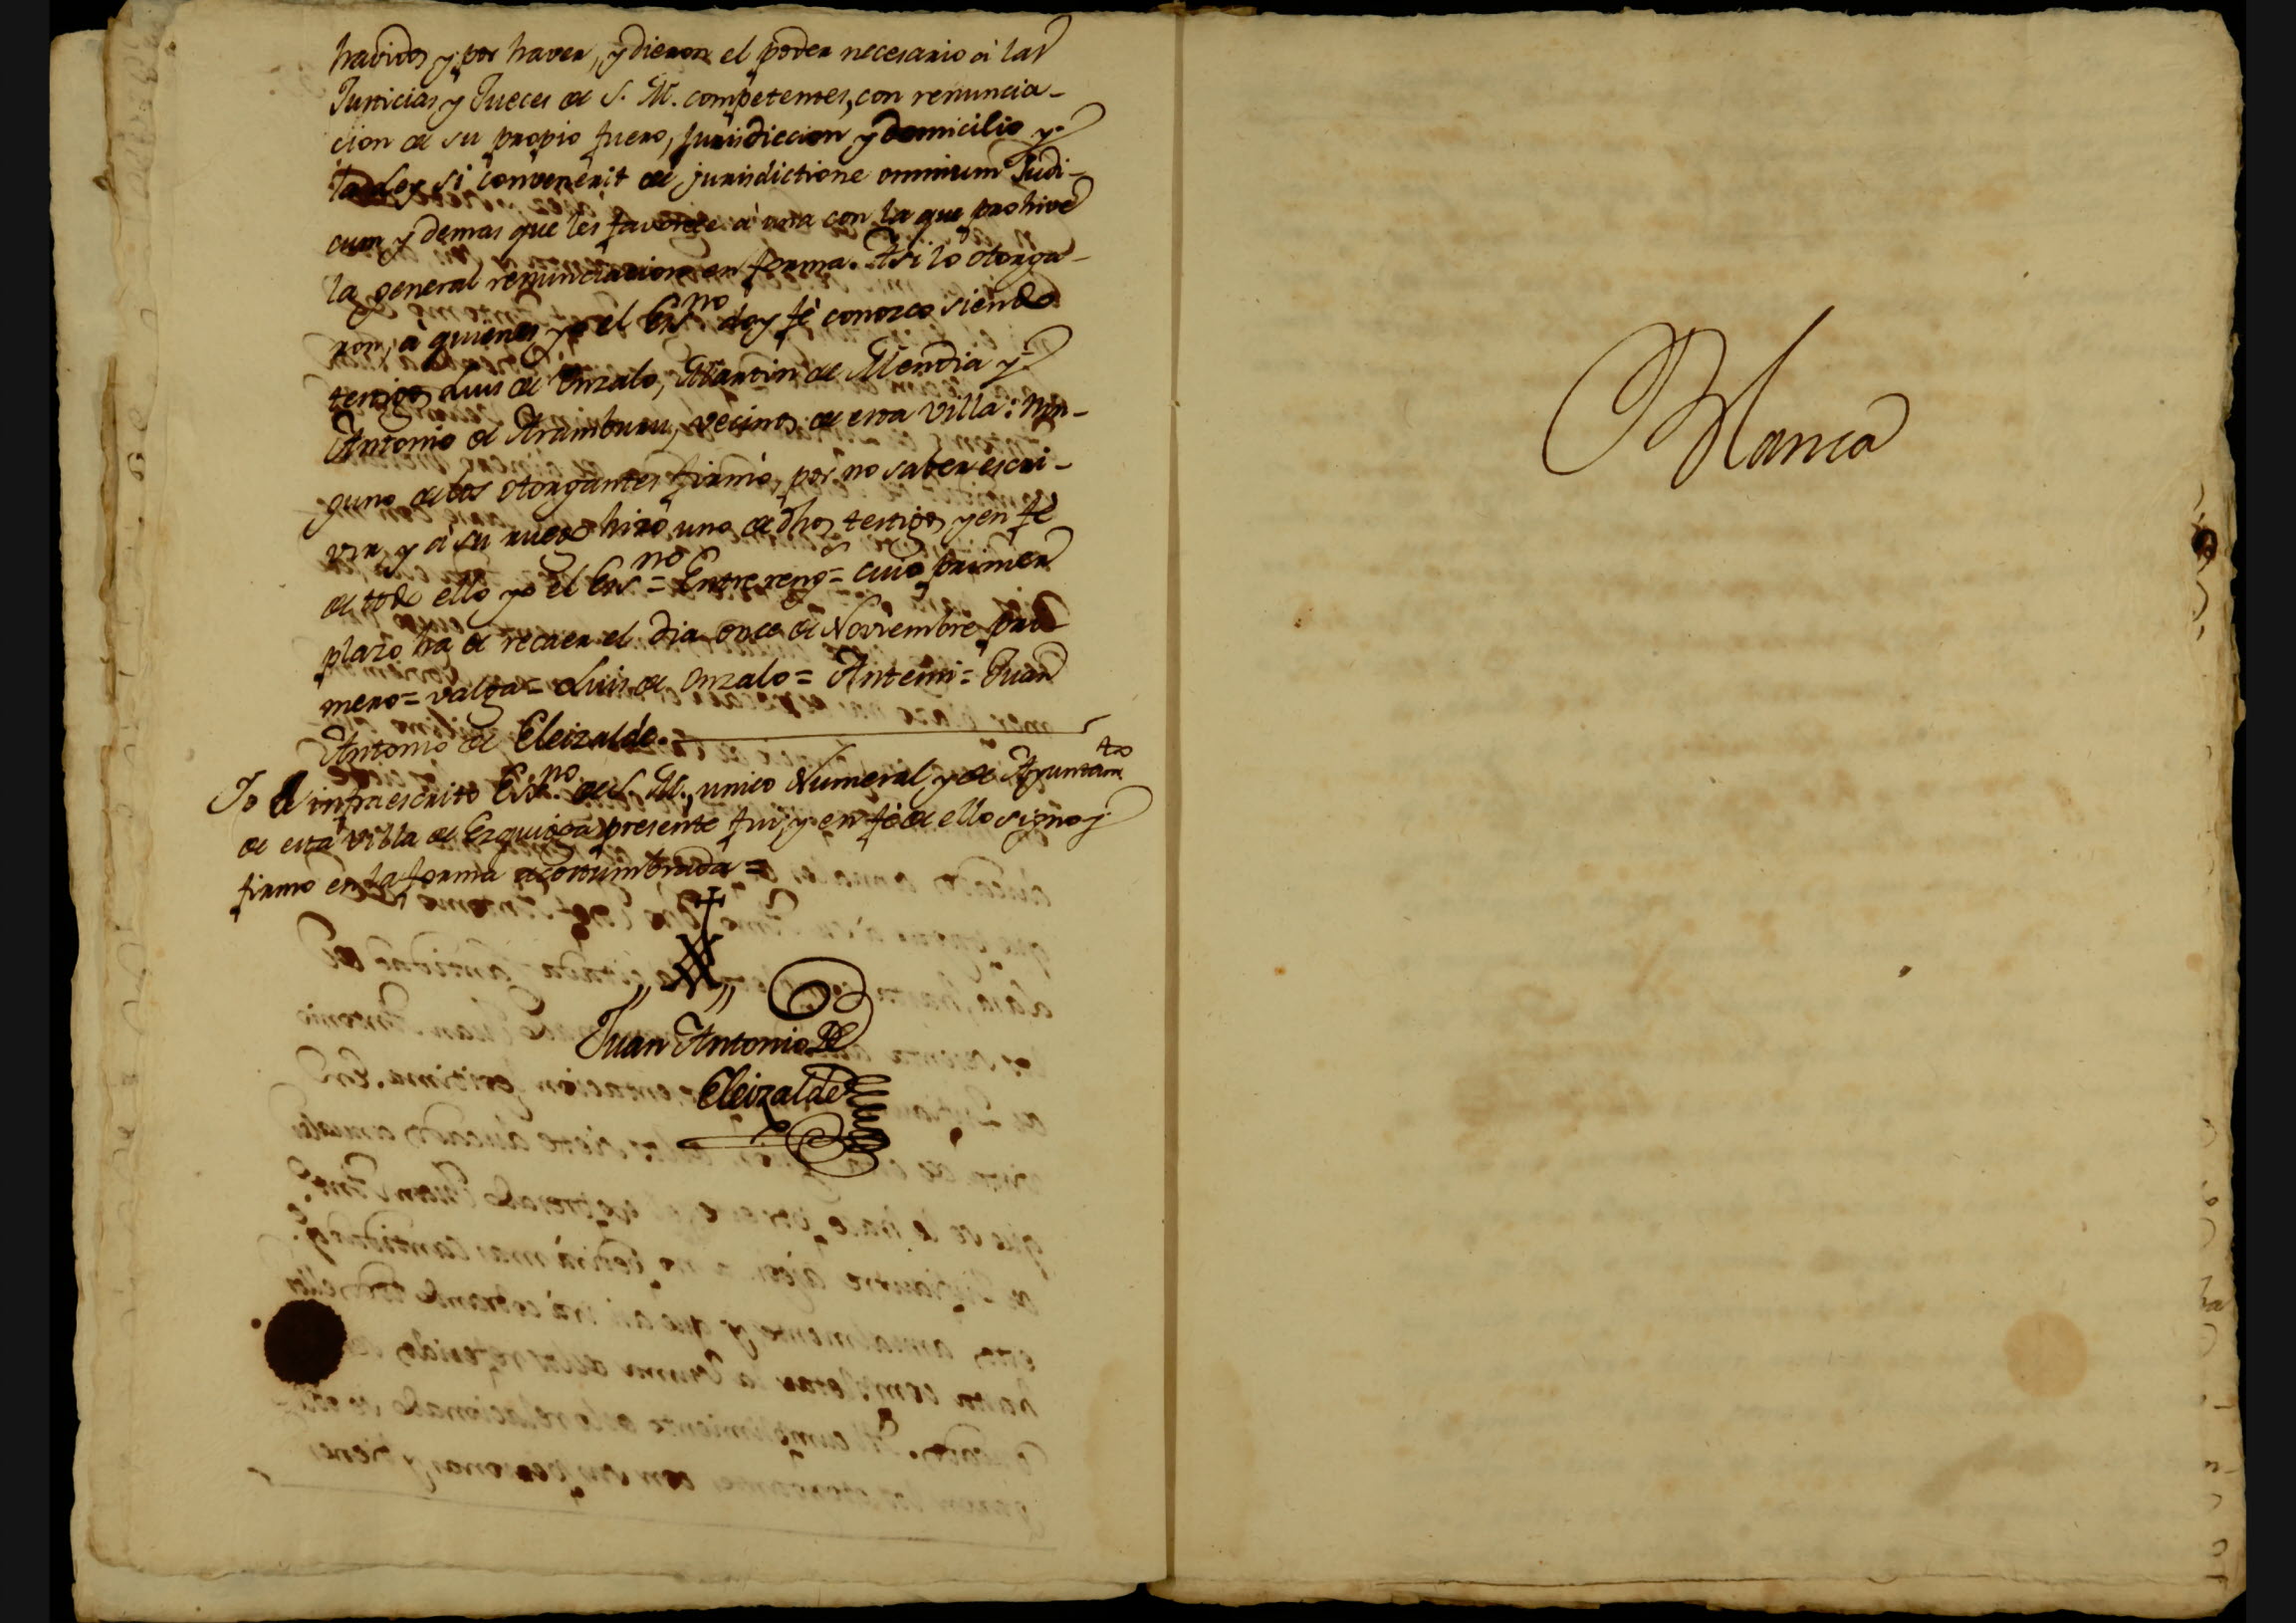 havidos y por haver, y dieron el poder necesario á las
Justicias y Jueces de S. M. competentes, con renuncia-
cion de su propio fuero, jurisdiccion y domicilio y
la Ley si convenerit de jurisdictione omnium Judi-
cum y demas que les favorece á una con la que prohive
la general renunciacion en forma. Asi lo otorga-
ron, á quienes yo el Esno doy fé conozco siendo
testigos Luis de Onzalo, Martin de Mendia y
Antonio de Aramburu, vecinos de esta villa: Nin-
guno de los otorgantes firmó, por no saber escri-
vir y á su ruego hizo uno de dhos testigos, y en fé
de todo ello yo el Esno = Entrerengs = cuio primer
plazo ha de recaer el dia once de Noviembre pri-
mero = valga = Luis de Onzalo = Antemi = Juan
Antonio de Eleizalde.
Yo el infraescrito Esno de S. M., unico Numeral, y de Ayuntamto
de esta villa de Ezquioga presente fui, y en fé de ello signo y
firmo en la forma acostumbrada =
Juan Antonio de
Eleizalde
Blanca